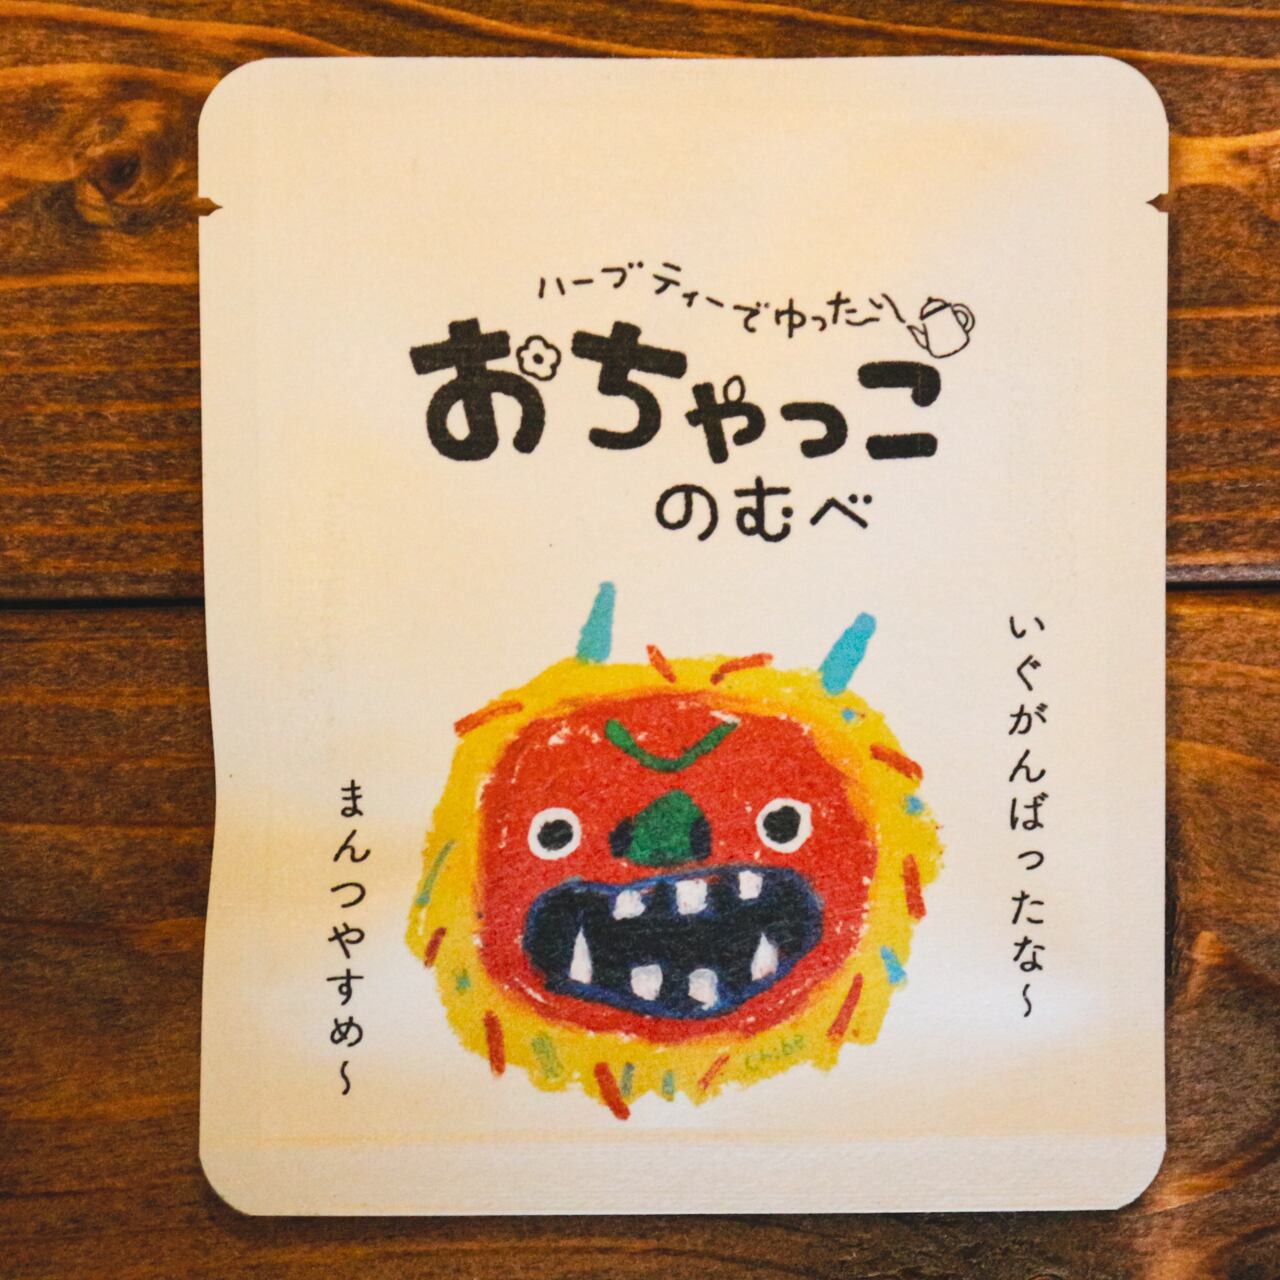 ハーブティーでゆったり
おちゃっこ
のむべ
いぐがんばったな〜
まんつやすめ〜
chibe